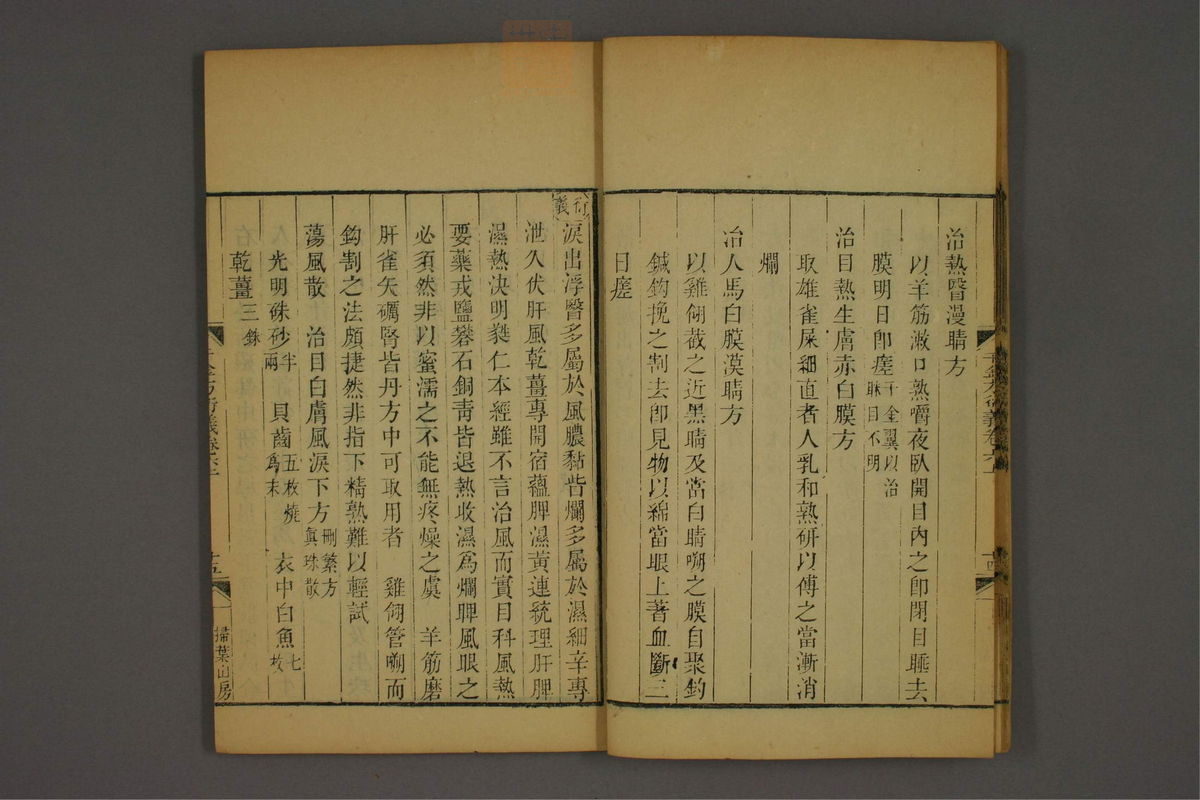 治熱瞖漫睛方
以羊筋漱口熟嚼夜臥開目內之卽閉目睡去
膜明日卽瘥千金翼以治眯目不明
治目熱生膚赤白膜方
取雄雀屎細直者人乳和熟研以傅之當漸消
爛
治人馬白膜漠睛方
以雞翎截之近黑睛及當白睛嘲之膜自聚鈎
鍼鈎挽之割去卽見物以綿當眼上著血斷三
日瘥
千金方衍義卷六上
十四
衍義
淚出浮瞖多屬於風膿黏眥爛多屬於濕細辛專
泄久伏肝風乾薑專開宿蘊脾濕黃連統理肝脾
濕熱決明蕤仁本經雖不言治風而實目科風熱
要藥戎鹽礬石銅靑皆退熱收濕爲爛脾風眼之
必須然非以蜜濡之不能無疼燥之虞　羊筋磨
肝雀矢礪腎皆丹方中可取用者　雞翎管嘲而
鈎割之法頗捷然非指下精熟難以輕試
蕩風散　治目白膚風淚下方刪繁方眞珠散
光明硃砂半兩　貝齒五枚燒爲末　衣中白魚七枚
乾薑三銖
千金方衍義卷六上
十五
掃葉山房